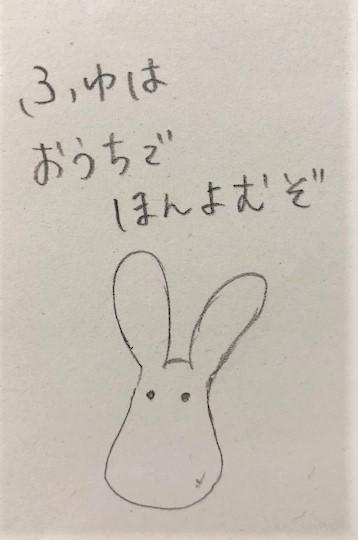 ふゆは
おうちで
ほんよむぞ